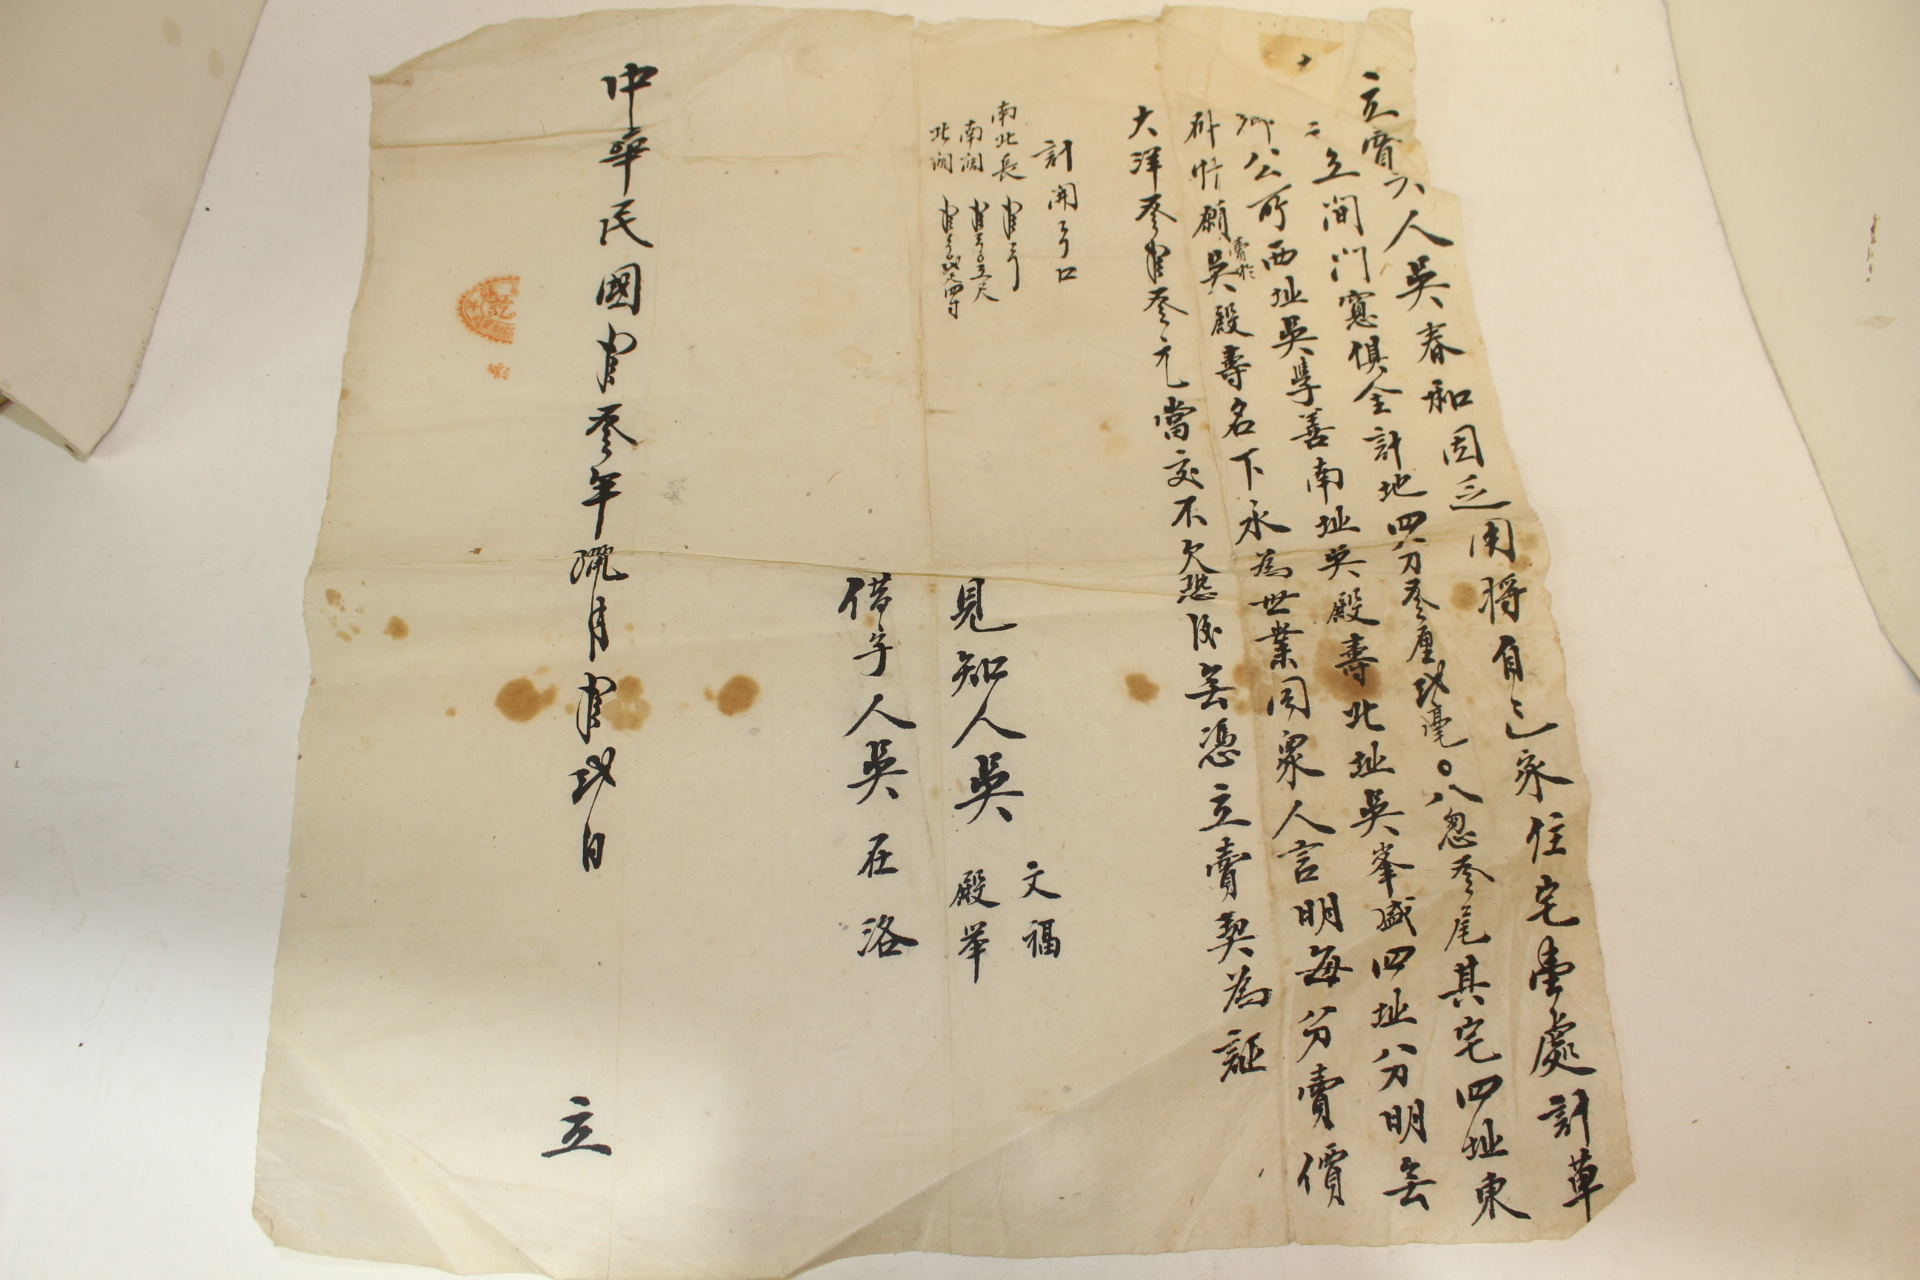 立賣人吳春和因乏用將自己家住宅壹處計草
立间门窓俱全計地四分叄厘弍毫〇八忽叄尾其宅四址東
公所西址吳學善南址吳殿壽北址吳峯盛四址分明無
情願賣於吳殿壽名下永為世業同衆人言明每分賣價
大洋叄拾叄元當交不欠恐後無憑立賣契為証
計開弓口
南北長拾弓
南濶拾弓〇五尺
北濶
見知人吳 文福 殿举
借字人吳在洛
中華民國拾叄年臘月拾弍日 立